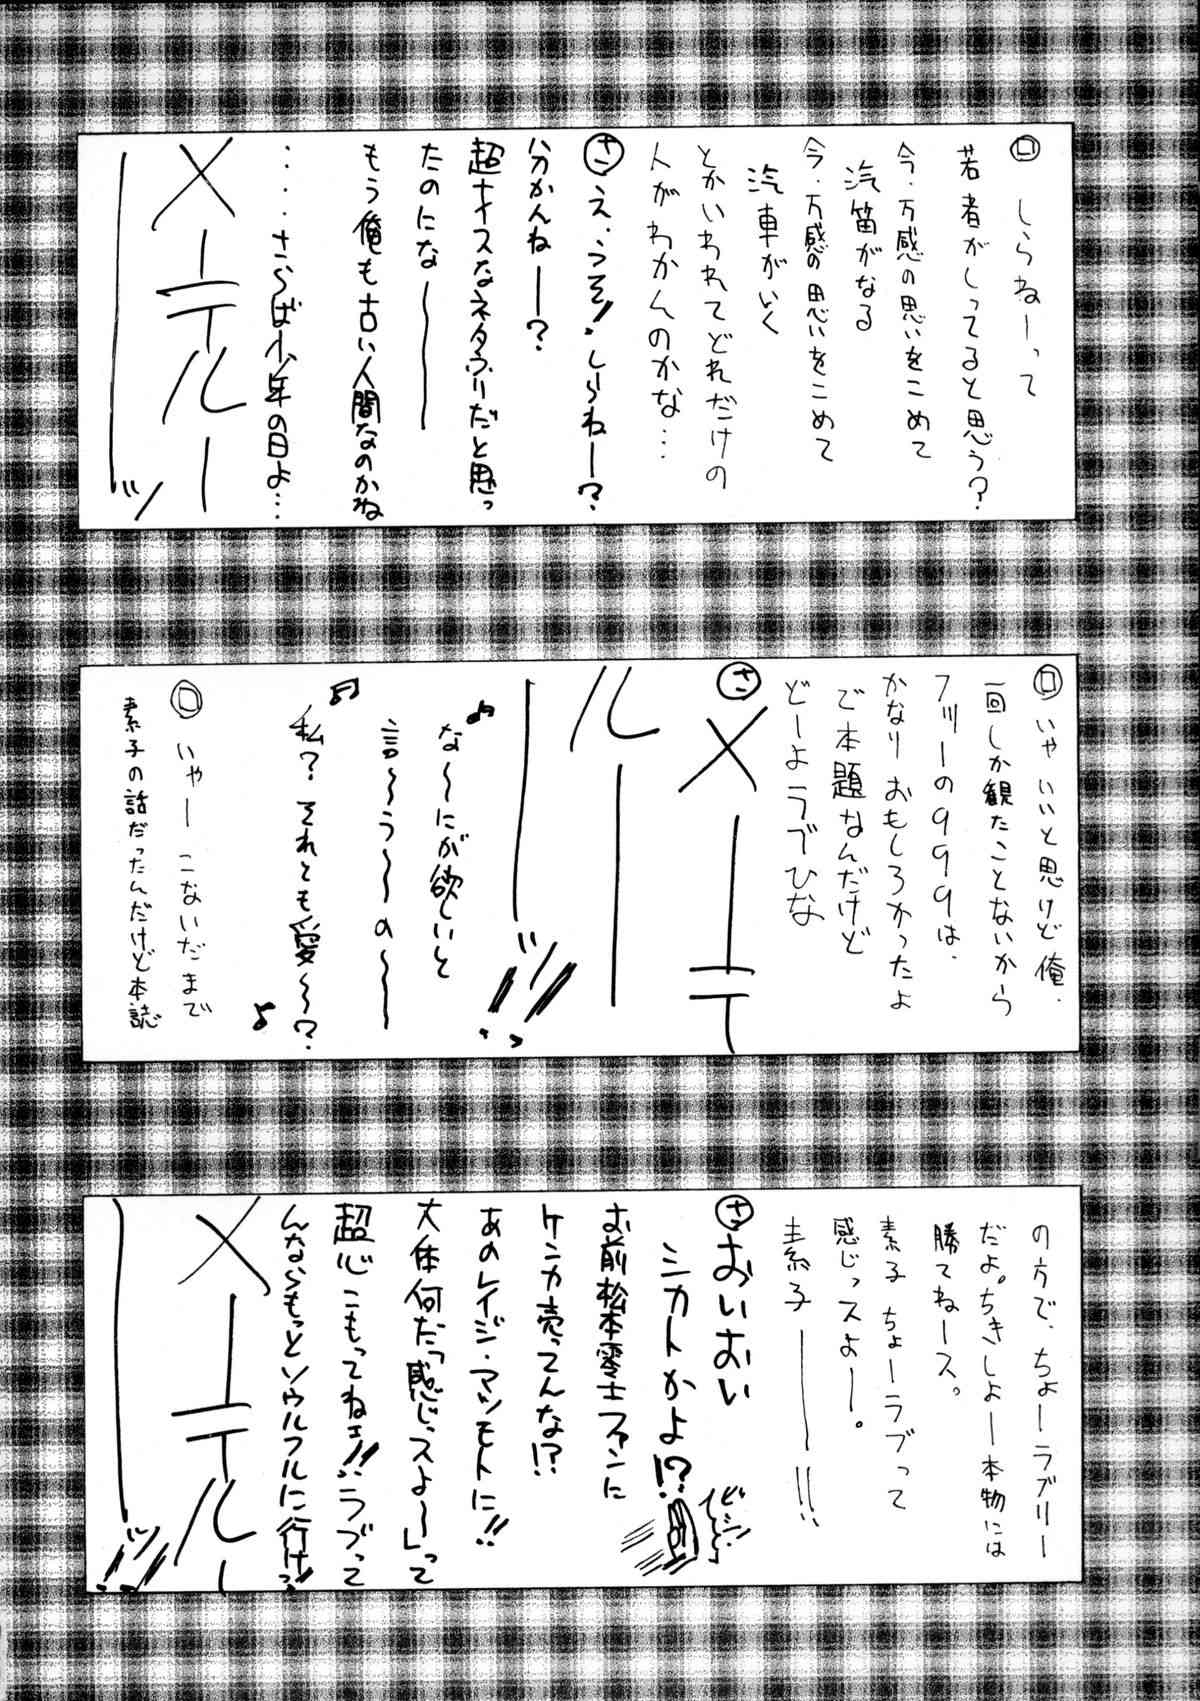 ロ しらねーって
若者がしってると思う?
今、万感の思いをこめて
汽笛がなる
今、万感の思いをこめて
汽車がいく
とかいわれてどれだけの
人がわかんのかな…
サ え、うそ!しらねー?
分かんねー?
超ナイスなネタふりだと思っ
たのにな〜
もう俺も古い人間なのかね
‥‥さらば少年の日よ…
メーテルー
ーッ
ロ いやいいと思けど俺、
一回しか観たことないから
フツーの999は、
かなりおもしろかったよ
で本題なんだけど
どーよラブひな
サ メーテ
ルー
ーッ!!
♪な〜にが欲しいと
言〜う〜の〜
♪私?それとも愛〜?♪
ロ いやー こないだまで
素子の話だったんだけど本誌
の方で、ちょーラブリー
だよ。ちきしょー本物には
勝てねース。
素子ちょーラブって
感じっスよー。
素子ー!!
サ おいおい
シカトかよ!?
お前松本零士ファンに
ケンカ売ってんな!?
あのレイジ・マツモトに!!
大体何だ「感じっスよ〜」って
超心こもってねェ!!ラブって
んならもっとソウルフルに行けっ!
メーテルー
ーッ!!